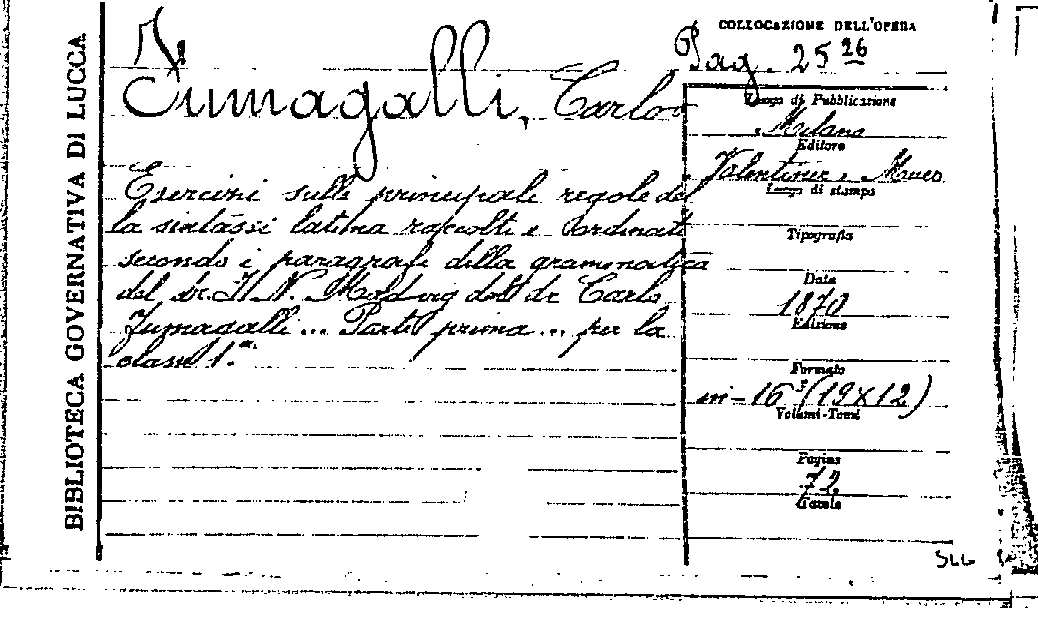 BIBLIOTECA GOVERNATIVA DI LUCCA
Fumagalli, Carlo
Esercizi sulle principali regole del
la sintassi latina raccolti e ordinati
secondo i paragrafi della grammatica
del dr. I. N. Madvig dott dr. Carlo
Fumagalli... Parte prima... per la
classe 1.a
COLLOCAZIONE DELL'OPERA
Pag. 25 26
Luogo di Pubblicazione
Milano
Editore
Valentiner e Mues
Luogo di stampa
Tipografia
Data
1870
Edizione
Formato
in-16° (19x12)
Volumi-Tomi
Pagine
72
Tavole
SLL